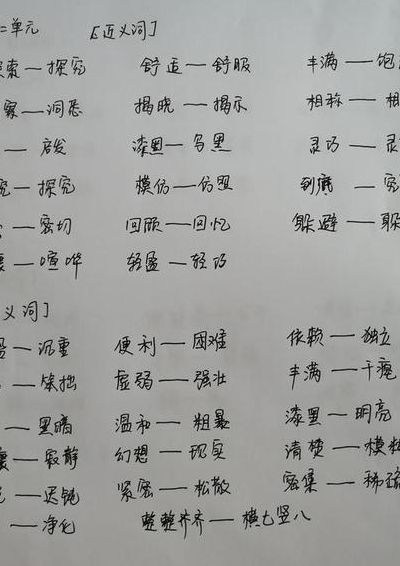 二单元 [近义词]
索—探究 舒适—舒服 丰满—饱
察—洞悉 揭晓—揭示 相称—相
—启发 漆黑—乌黑 灵巧—灵
究—探究 模仿—仿照
—密切 回顾—回忆 躲避—躲
—喧哗 轻盈—轻巧
义词]
盈—沉重 便利—困难 依赖—独立
—笨拙 虚弱—强壮 丰满—干瘪
—黑暗 温和—粗暴 漆黑—明亮
—寂静 幻想—现实 清楚—模糊
—迟钝 紧密—松散 密集—稀疏
—净化 整整齐齐—横七竖八